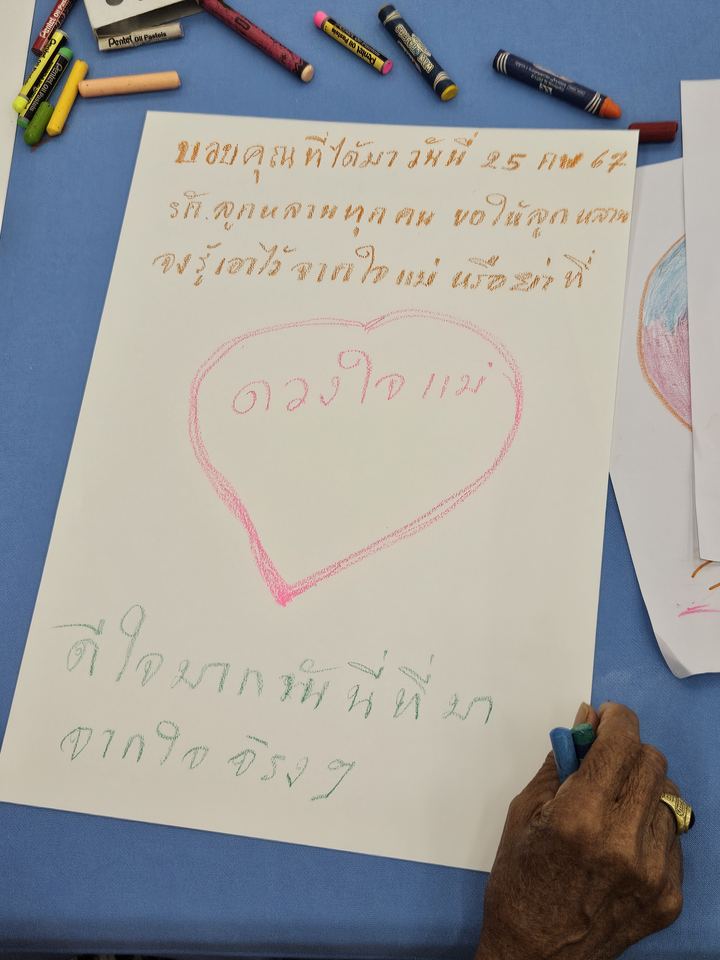 Pentel Oil Pastels
ขอบคุณที่ได้มาวันนี้ 25 กพ 67
รัก.ลูกหลานทุกคน ขอให้ลูกหลาน
จงรู้เอาไว้ จากใจแม่ หรือย่าที่
ดวงใจแม่
ดีใจมากวันนี้ที่มา
จากใจจริงๆ